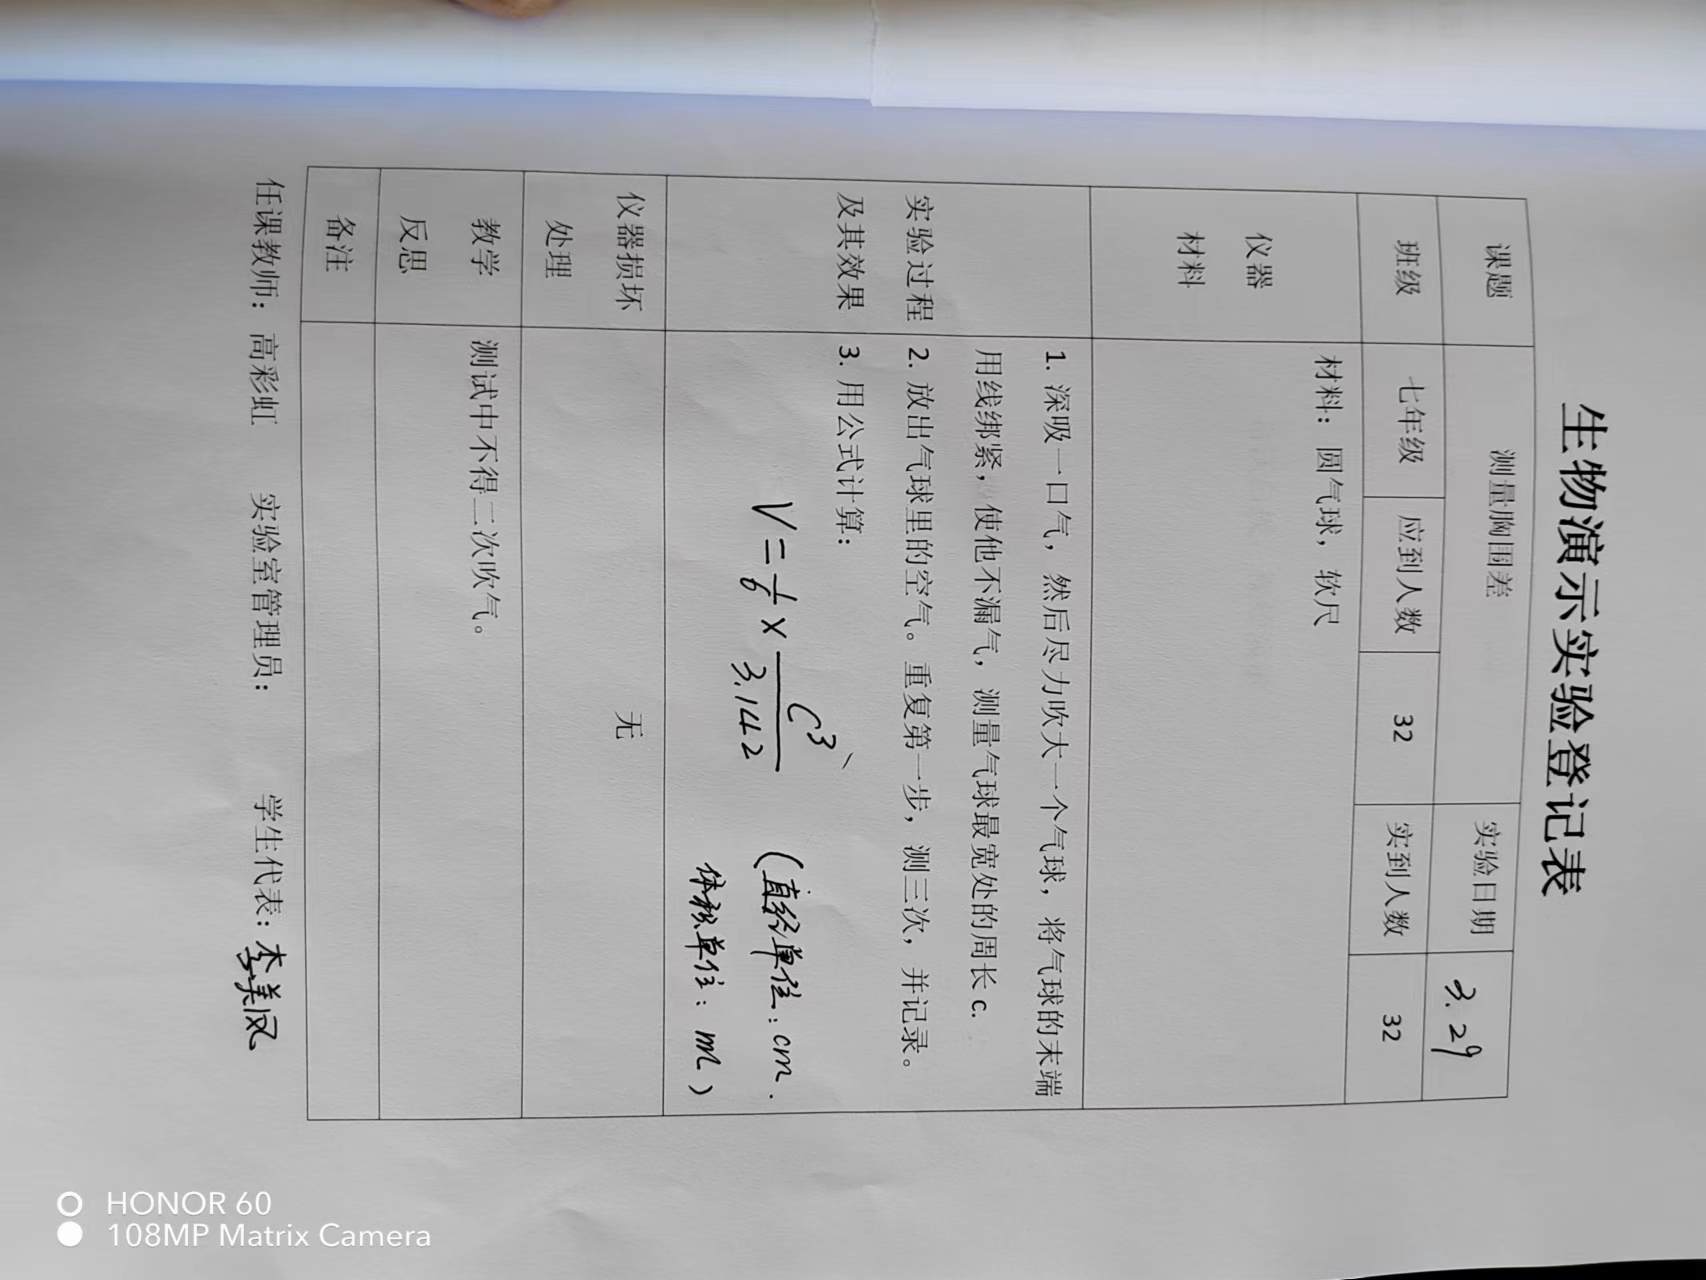 生物演示实验登记表
课题 测量胸围差 实验日期 3.29
班级 七年级 应到人数 32 实到人数 32
仪器
材料
材料：圆气球，软尺
实验过程
及其效果
1. 深吸一口气，然后尽力吹大一个气球，将气球的末端
用线绑紧，使他不漏气，测量气球最宽处的周长 c.
2. 放出气球里的空气。重复第一步，测三次，并记录。
3. 用公式计算：
V = 1/6 × C³/3.142
(直径单位：cm.
体积单位：mL)
仪器损坏
处理
无
教学
反思
测试中不得二次吹气。
备注
任课教师：高彩虹 实验室管理员： 学生代表：李美凤
HONOR 60
108MP Matrix Camera